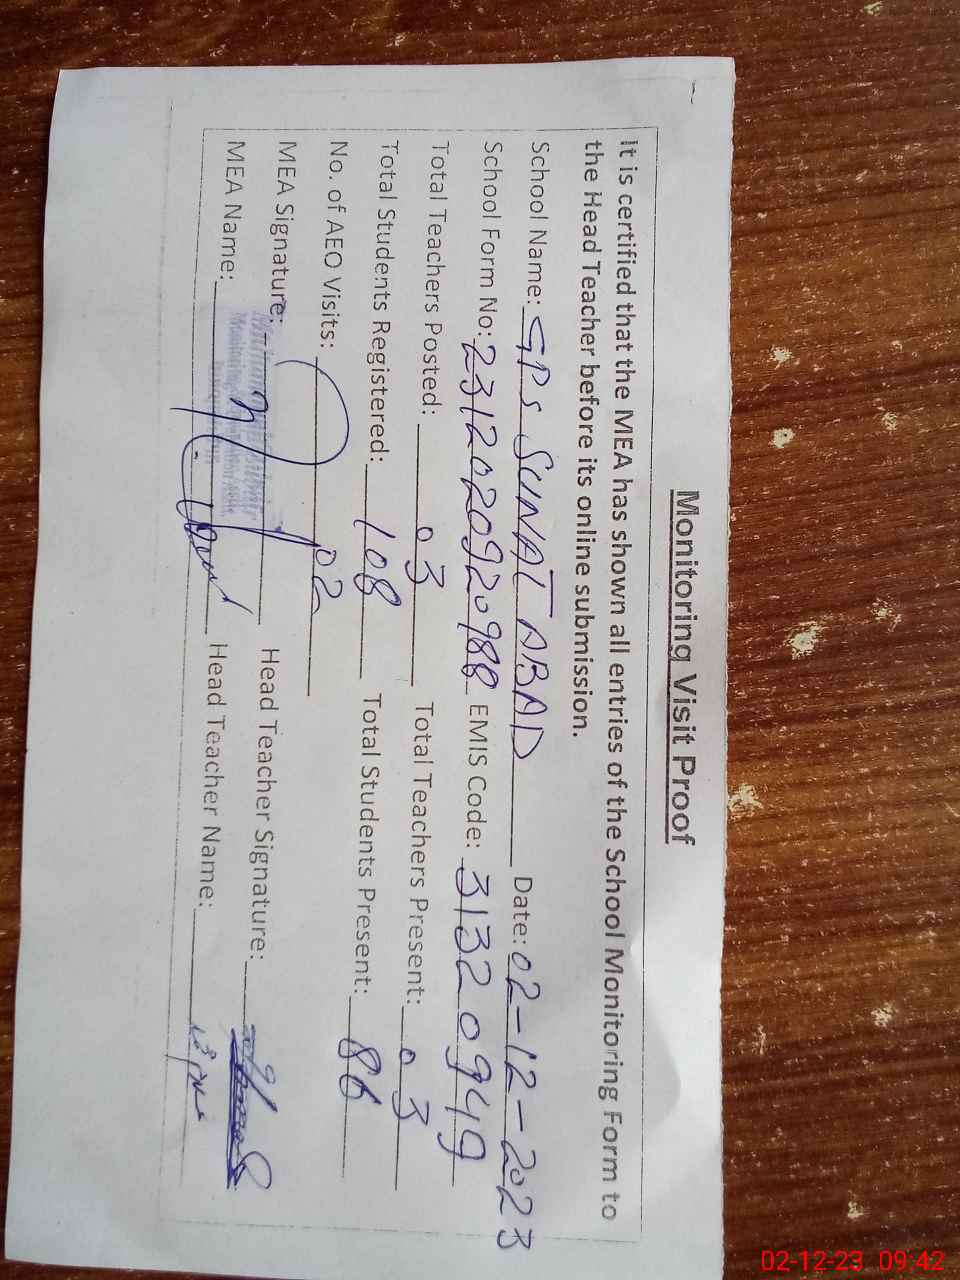 Monitoring Visit Proof
It is certified that the MEA has shown all entries of the School Monitoring Form to
the Head Teacher before its online submission.
School Name: GPS SUNAT ABAD Date: 02-12-2023
School Form No: 2312020920988 EMIS Code: 31320949
Total Teachers Posted: 03 Total Teachers Present: 03
Total Students Registered: 108 Total Students Present: 86
No. of AEO Visits: 02
MEA Signature: Head Teacher Signature:
MEA Name: Head Teacher Name:
02-12-23 09:42